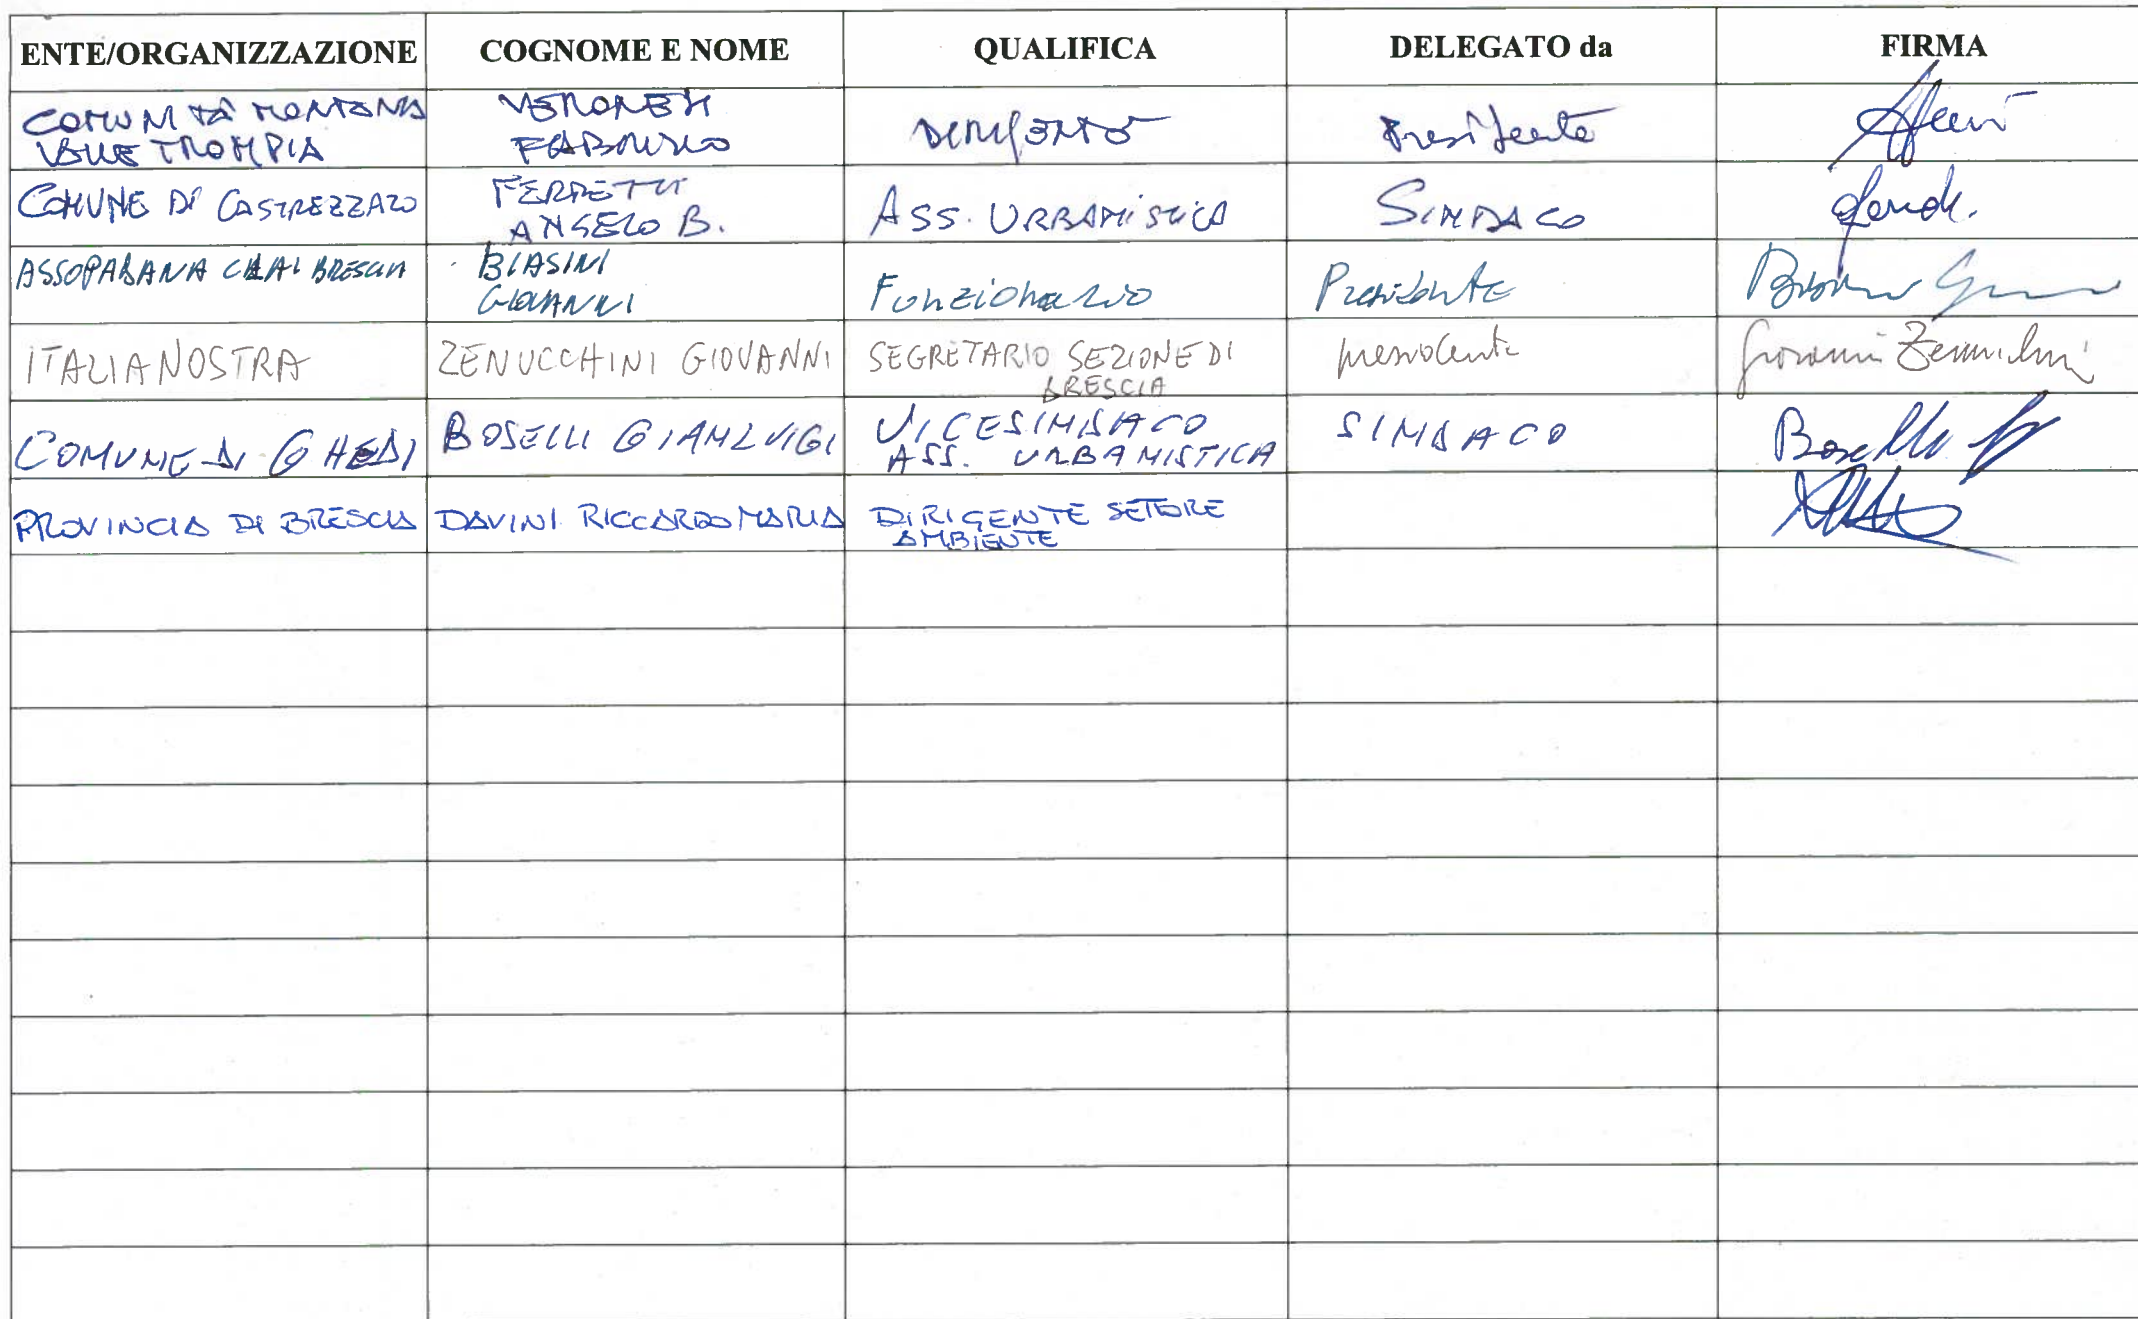 ENTE/ORGANIZZAZIONE COGNOME E NOME QUALIFICA DELEGATO da FIRMA
COMUNITÀ MONTANA VALLE TROMPIA VERONESI FABRIZIO DIRIGENTE Presidente
COMUNE DI CASTREZZATO FERRETTI ANGELO B. ASS. URBANISTICA SINDACO
BRESCIA BIASINI GIOVANNI Funzionario Presidente
ITALIA NOSTRA ZENUCCHINI GIOVANNI SEGRETARIO SEZIONE DI BRESCIA presidente Giovanni Zenucchini
COMUNE DI GHEDI BOSELLI GIANLUIGI VICESINDACO ASS. URBANISTICA SINDACO
PROVINCIA DI BRESCIA DAVINI RICCARDO MARIA DIRIGENTE SETTORE AMBIENTE